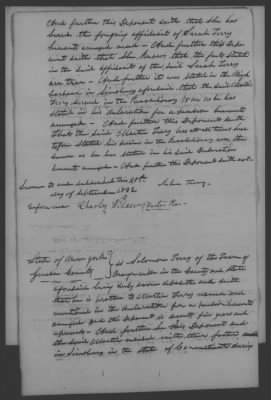 And further this Deponent saith that she has
heard the foregoing affidavit of Sarah Terry
hereunto annexed read — And further this Depo-
nent saith that she knows that the facts stated
in the said affidavit of the said Sarah Terry
are true — And further it was stated in the
in Simsbury aforesaid that the said Martin
Terry served in the Revolutionary War as he has
stated in his declaration for a pension hereunto
annexed — And further this Deponent saith
That the said Martin Terry has at all times here
tofore stated his service in the Revolutionary war, the
same as he has stated in his said declaration
hereunto annexed — And further this Deponent saith not.
Sworn to and subscribed this
day of September 1832
before me Charles
State of New york
Greene County ss Solomon Terry of the Town of
in the County and State
aforesaid being duly sworn deposeth and saith
that he is brother to Martin Terry named and
mentioned in the declaration for a pension hereunto
annexed and this Deponent is seventy five years and
upwards — And further saith this Deponent and
the said Martin resided with their father
in Simsbury in the State of Connecticut during